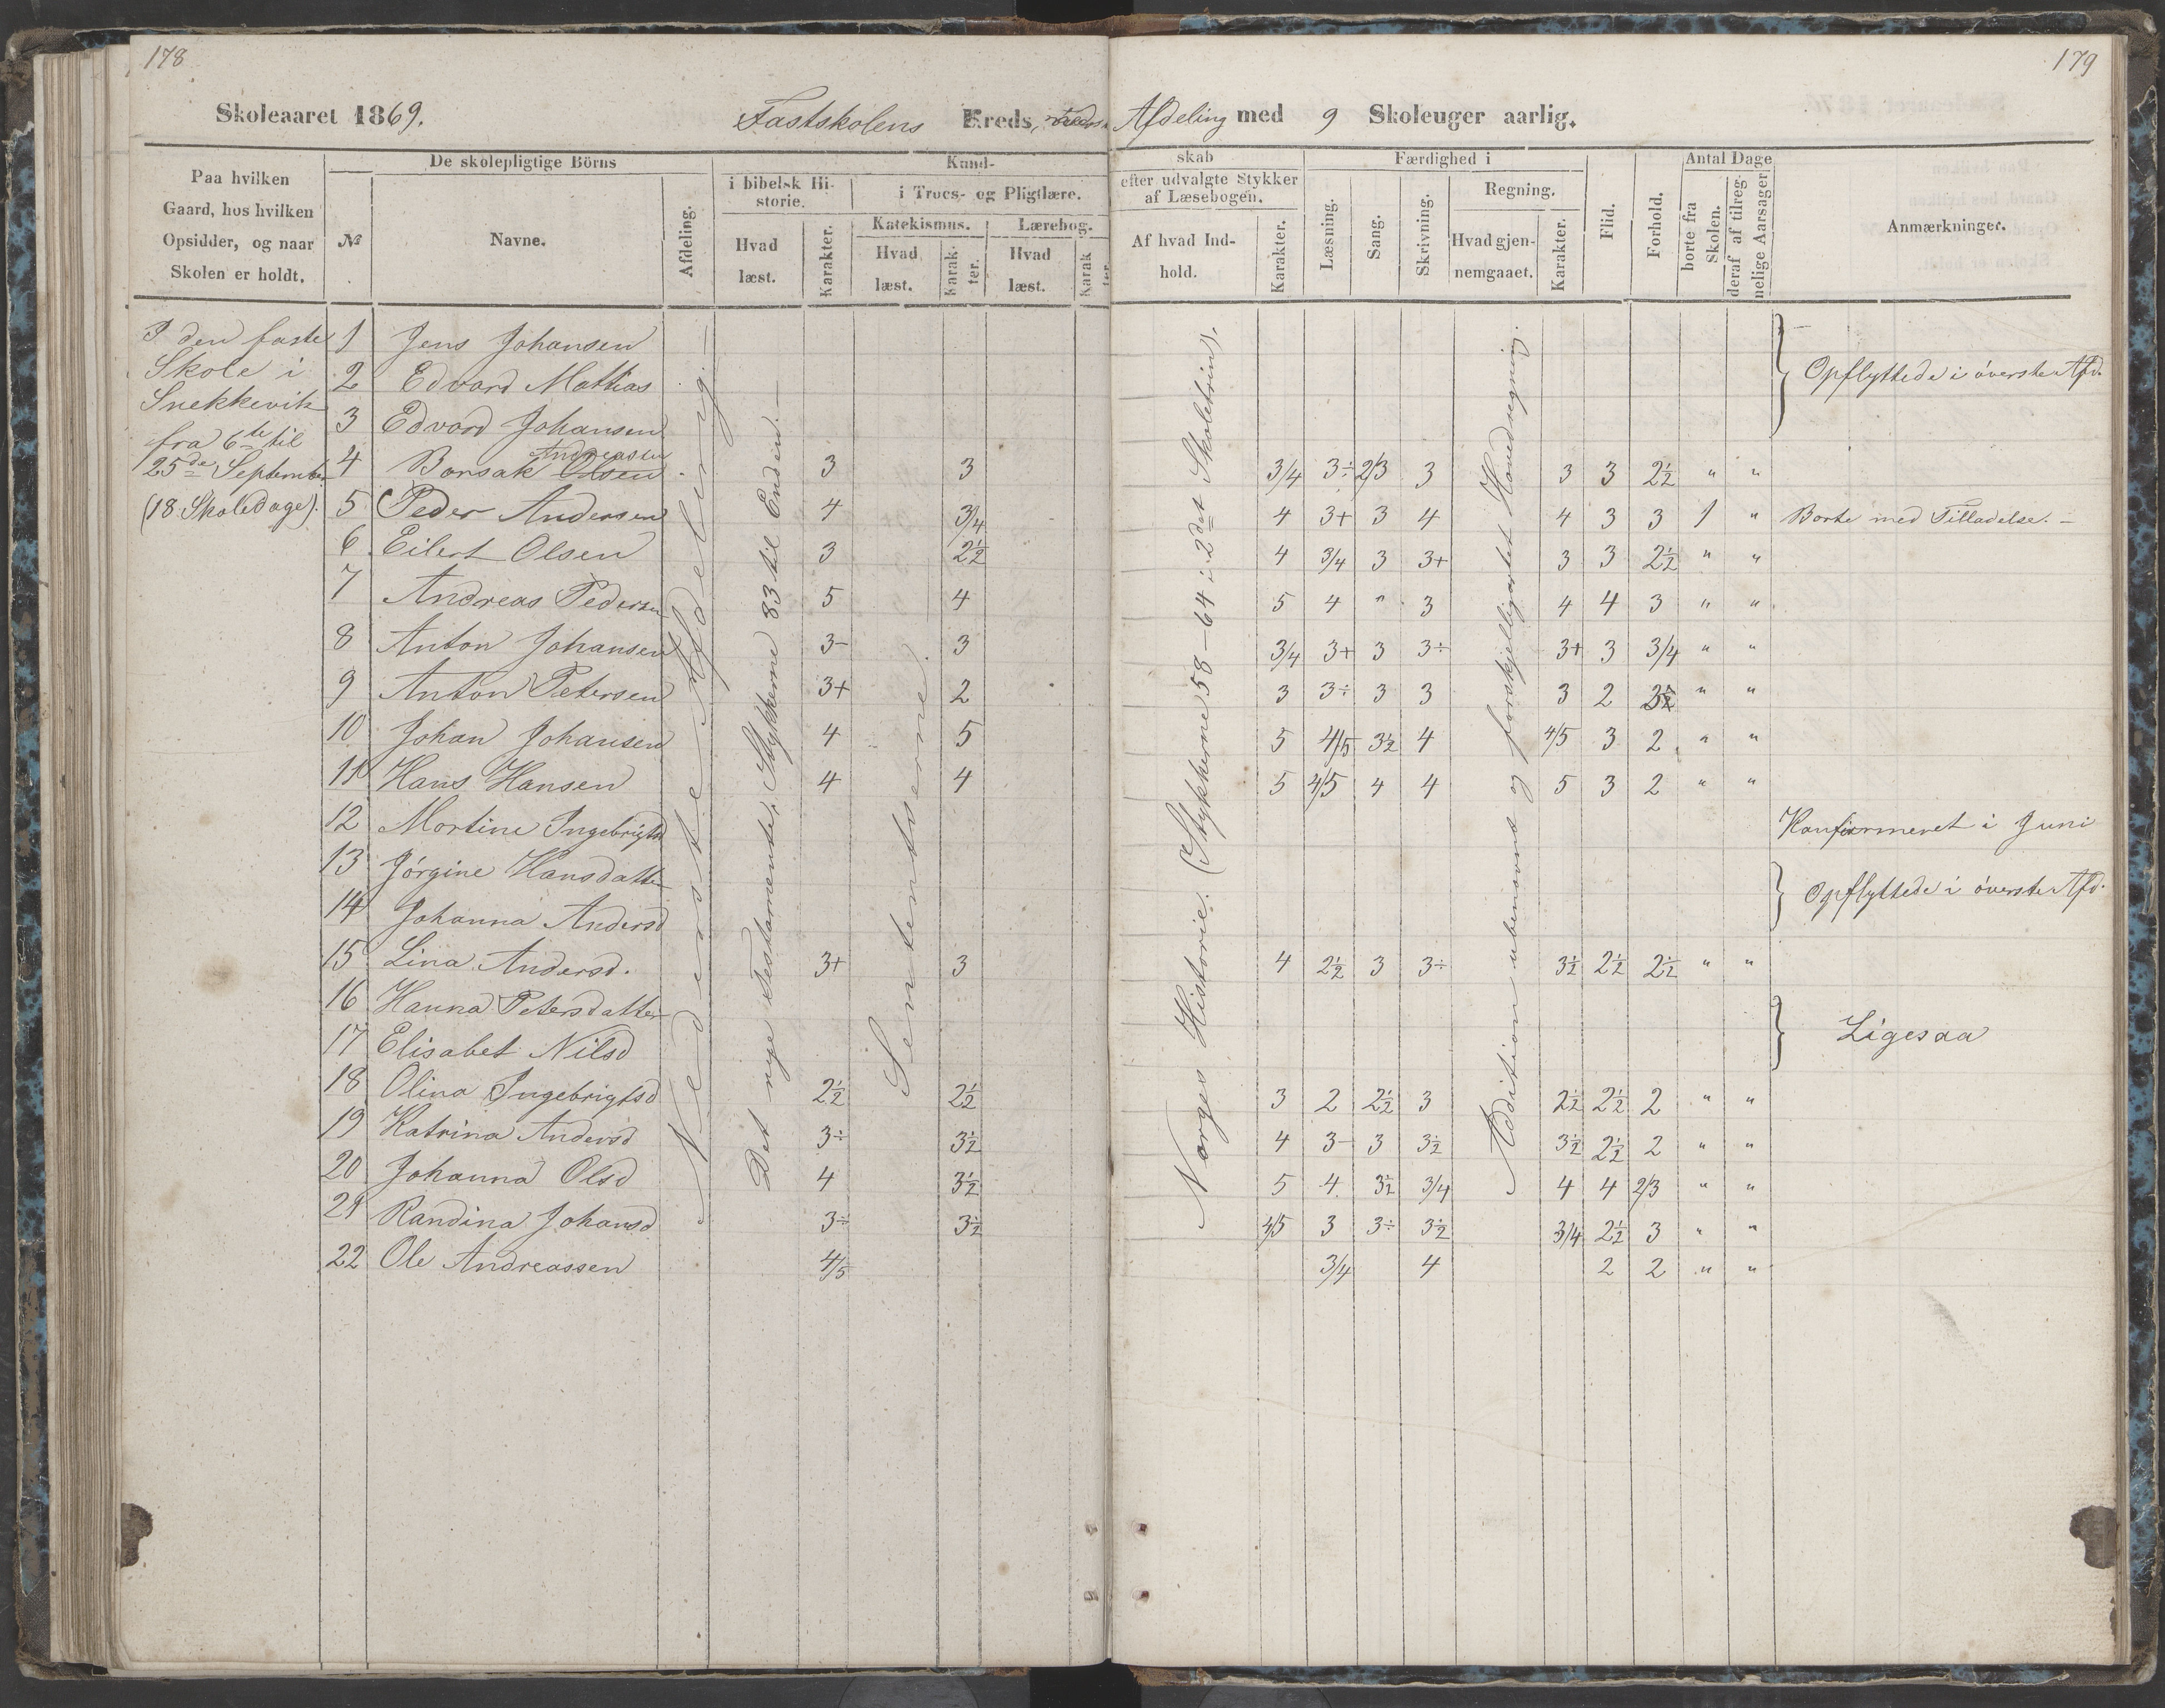 178
179
Skoleaaret 1869. Fastskolens Kreds, Afdeling med 9 Skoleuger aarlig.
Paa hvilken
Gaard, hos hvilken
Opsidder, og naar
Skolen er holdt.
De skolepligtige Börns
№
Navne.
Afdeling.
Kund-
i bibelsk Hi-
storie.
Hvad
læst.
Karakter.
i Troes- og Pligtlære.
Katekismus.
Hvad
læst.
Karak-
ter.
Lærebog.
Hvad
læst.
Karak
ter.
skab
efter udvalgte Stykker
af Læsebogen.
Af hvad Ind-
hold.
Karakter.
Færdighed i
Læsning.
Sang.
Skrivning.
Regning.
Hvad gjen-
nemgaaet.
Karakter.
Flid.
Forhold.
Antal Dage
borte fra
Skolen.
deraf af tilreg-
nelige Aarsager
Anmærkninger.
I den faste
Skole i
Snekkevik
fra 6te til
25de Septemb.
(18 Skoledage).
Nederste Afdeling.
Det nye Testamente, Stykkerne 83 til Enden.
Sententserne.
Norges Historie. (Stykkerne 58-64 i 2det Skoletrin).
Addition ubenævnt og forskjelligartet Hovedregning.
1 Jens Johansen
2 Edvard Mathias
3 Edvard Johansen
Opflyttede i överste Afd.
Andreasen
4 Bonsak Olsen 3 3 3/4 3÷ 2/3 3 3 3 2½ " "
5 Peder Andersen 4 3/4 4 3+ 3 4 4 3 3 1 " Borte med Tilladelse. –
6 Eilert Olsen 3 2½ 4 3/4 3 3+ 3 3 2½ " "
7 Andreas Pedersen 5 4 5 4 " 3 4 4 3 " "
8 Anton Johansen 3- 3 3/4 3+ 3 3÷ 3+ 3 3/4 " "
9 Anton Petersen 3+ 2 3 3÷ 3 3 3 2 " "
10 Johan Johansen 4 5 5 4/5 3½ 4 4/5 3 2 " "
11 Hans Hansen 4 4 5 4/5 4 4 5 3 2 " "
12 Martine Ingebrigtsd Konfirmeret i Juni
13 Jörgine Hansdatter
14 Johanna Andersd
Opflyttede i överste Afd.
15 Lina Andersd. 3+ 3 4 2½ 3 3÷ 3½ 2½ 2½ " "
16 Hanna Petersdatter
17 Elisabet Nilsd
Ligesaa
18 Olina Ingebrigtsd 2½ 2½ 3 2 2½ 3 2½ 2½ 2 " "
19 Katrina Andersd 3÷ 3½ 4 3- 3 3½ 3½ 2½ 2 " "
20 Johanna Olsd 4 3½ 5 4 3½ 3/4 4 4 2/3 " "
21 Randina Johansd 3÷ 3½ 4/5 3 3÷ 3½ 3/4 2½ 3 " "
22 Ole Andreassen 4/5 3/4 4 2 2 " "